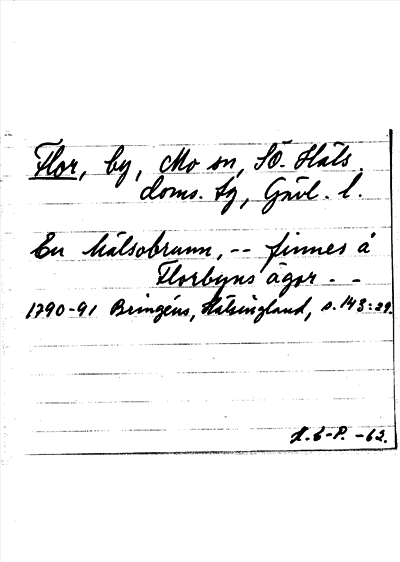 Flor, by, Mo sn, SÖ. Häls.
doms. tg, Gävl. l.
En Hälsobrunn, -- finnes å
Florbyns ägor - -
1790-91 Bringéus, Hälsingland, s. 143:29.
H. G-P. -62.